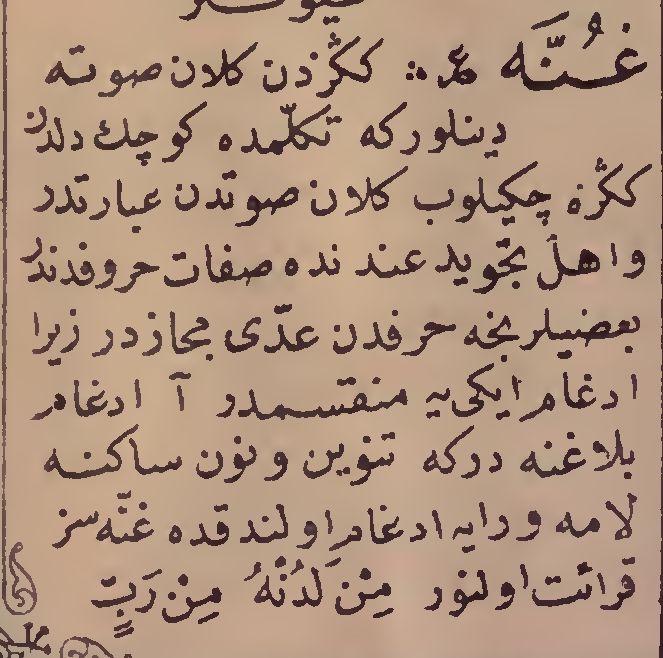 غُنَّه ع ∴ ككزدن كلان صوته
دينلوركه تكلّمده كوچك دلدن
ككزه چكيلوب كلان صوتدن عبارتدر
واهل تجويد عندنده صفات حروفدندر
بعضيلرنجه حرفدن عدّى مجازدر زيرا
ادغام ايكى‌يه منقسمدر آ ادغام
بلاغنه دركه تنوين ونون ساكنه
لامه ورايه ادغام اولندقده غنّه‌سز
قرائت اولنور مِنْ لَدُنْهُ مِنْ رَبٍّ